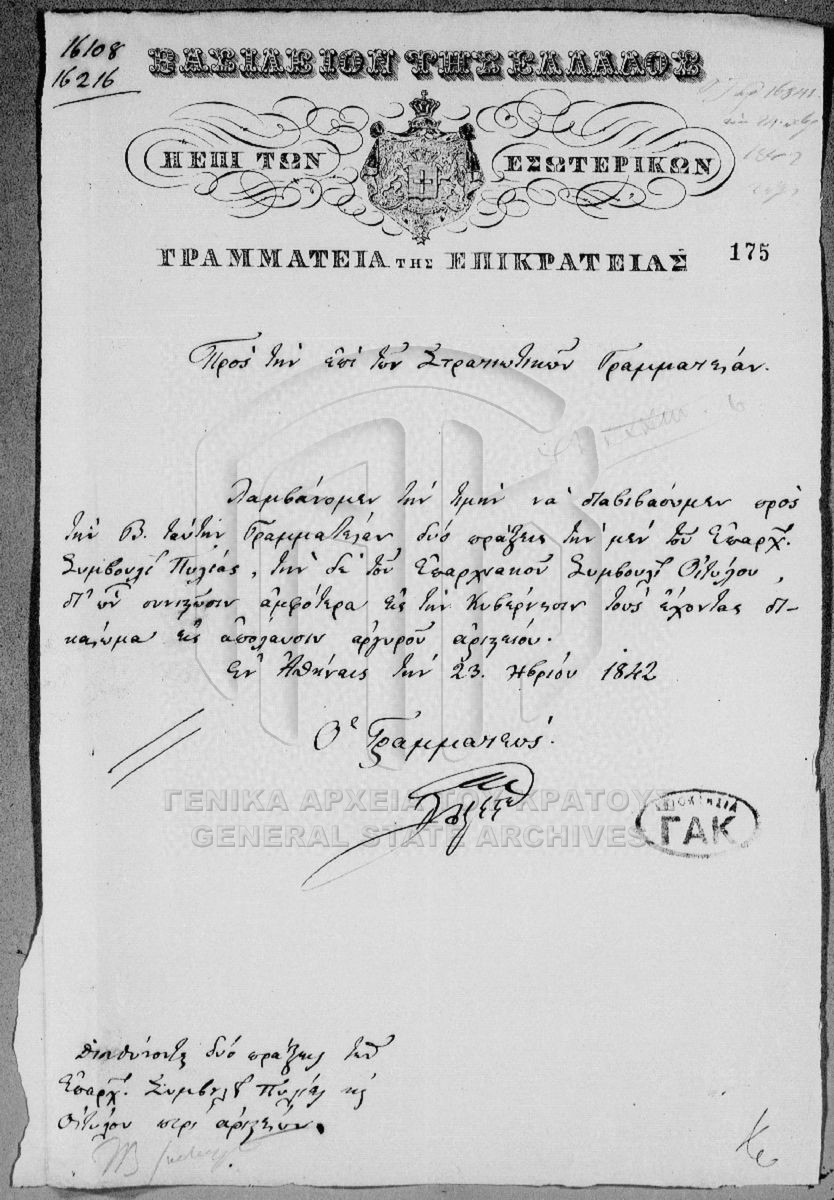 16108
16216
ΒΑΣΙΛΕΙΟΝ ΤΗΣ ΕΛΛΑΔΟΣ
ΠΕΡΙ ΤΩΝ ΕΣΩΤΕΡΙΚΩΝ
ΓΡΑΜΜΑΤΕΙΑ ΤΗΣ ΕΠΙΚΡΑΤΕΙΑΣ
175
Πρὸς τὴν ἐπὶ τῶν Στρατιωτικῶν Γραμματείαν.
Λαμβάνομεν τὴν τιμὴν νὰ διαβιβάσωμεν πρὸς
τὴν Β. ταύτην Γραμματείαν δύο πράξεις τὴν μὲν τοῦ Ἐπαρχ.
Συμβουλί Πυλίας, τὴν δὲ τοῦ Ἐπαρχιακοῦ Συμβουλί Οἰτύλου,
δι' ὧν συνιστῶσιν ἀμφότερα εἰς τὴν Κυβέρνησιν τοὺς ἔχοντας δι-
καίωμα εἰς ἀπόλαυσιν ἀργυροῦ ἀριστείου.
Ἐν Ἀθήναις τὴν 23. 8βρίου 1842
Ὁ Γραμματεὺς.
ΓΕΝΙΚΑ ΑΡΧΕΙΑ ΤΟΥ ΚΡΑΤΟΥΣ
GENERAL STATE ARCHIVES
ΙΔΙΟΚΤΗΣΙΑ
ΓΑΚ
δύο πράξεις τῶν
Ἐπαρχ. Συμβουλ Πυλίας κ
Οἰτύλου περὶ ἀριστείων.